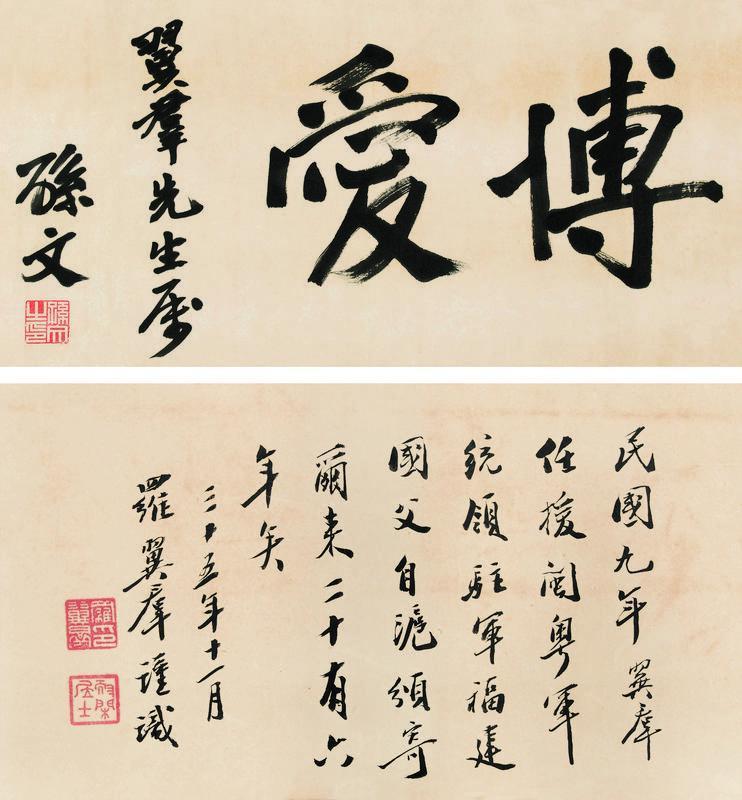 博愛
翼羣先生屬
孫文
孫文之印
民國九年翼羣
任援閩粵軍
統領駐軍福建
國父自滬頒寄
爾来二十有六
年矣
三十五年十一月
羅翼羣謹識
羅印翼羣